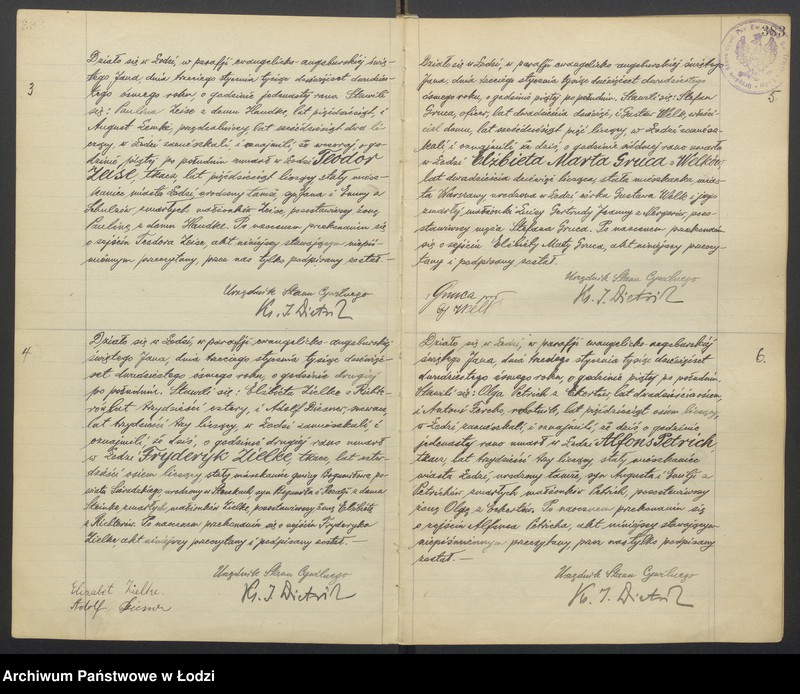 3
Działo się w Łodzi, w parafji ewangelicko-augsburskiej świę-
tego Jana, dnia trzeciego stycznia tysiąc dziewięćset dwudzies-
tego ósmego roku, o godzinie jedenastej rano. Stawili
się: Paulina Zeise z domu Handke, lat pięćdziesiąt, i
August Lemke, przędzalniczy, lat sześćdziesiąt dwa li-
czący, w Łodzi zamieszkali i oznajmili, że wczoraj, o go-
dzinie piątej po południu umarł w Łodzi Teodor
Zeise, tkacz, lat pięćdziesiąt liczący stały miesz-
kaniec miasta Łodzi, urodzony tamże, syn Jana i Emmy z
zmarłych małżonków Zeise, pozostawiwszy żonę
Paulinę z domu Handke. Po naocznem przekonaniu się
o zejściu Teodora Zeise, akt niniejszy stawającym niepiś-
miennym przeczytany, przez nas tylko podpisany został. —
Urzędnik Stanu Cywilnego
Ks. J. Dietrich
4.
Działo się w Łodzi, w parafji ewangelicko-augsburskiej
świętego Jana, dnia trzeciego stycznia tysiąc dziewięć-
set dwudziestego ósmego roku, o godzinie drugiej
po południu. Stawili się: Elżbieta Zielke z Richte-
rów, lat trzydzieści cztery, i Adolf Diesner, murarz,
lat trzydzieści trzy liczący, w Łodzi zamieszkali i
oznajmili, że dziś, o godzinie drugiej rano umarł
w Łodzi Fryderyk Zielke, tkacz, lat czter-
dzieści osiem liczący, stały mieszkaniec gminy Bogumiłów, po-
wiatu Sieradzkiego urodzony w syn i z domu
Steinke, zmarłych małżonków Zielke, pozostawiwszy żonę Elżbietę
z Richterów. Po naocznem przekonaniu się o zejściu Fryderyka
Zielke, akt niniejszy przeczytany i podpisany został. —
Urzędnik Stanu Cywilnego
Ks. J. Dietrich
Elisabet Zielke.
Adolf Diesner
383
5
Działo się w Łodzi, w parafji ewangelicko-augsburskiej świętego
Jana, dnia trzeciego stycznia tysiąc dziewięćset dwudziestego
ósmego roku, o godzinie piątej po południu. Stawili się: Stefan
Gruca, oficer, lat dwadzieścia dziewięć, i Gustaw Welk, właści-
ciel domu, lat sześćdziesiąt pięć liczący, w Łodzi zamiesz-
kali i oznajmili, że dziś, o godzinie siódmej rano umarła
w Łodzi Elżbieta Marta Gruca z Welków,
lat dwadzieścia dziewięć licząca, stała mieszkanka mias-
ta Warszawy urodzona w Łodzi córka Gustawa Welk i jego
zmarłej małżonki Luizy Gertrudy Joanny z pozo-
stawiwszy męża Stefana Gruca. Po naocznem przekonaniu
się o zejściu Elżbiety Marty Gruca, akt niniejszy przeczy-
tany i podpisany został.
Urzędnik Stanu Cywilnego
Ks. J. Dietrich
Gruca
G. Welk
6.
Działo się w Łodzi, w parafji ewangelicko-augsburskiej
świętego Jana, dnia trzeciego stycznia tysiąc dziewięćset
dwudziestego ósmego roku, o godzinie piątej po południu.
Stawili się: Olga Petrich z Eckertów, lat dwadzieścia osiem,
i Antoni Ferchо, robotnik, lat pięćdziesiąt osiem liczący,
w Łodzi zamieszkali, i oznajmili, że dziś o godzinie
jedenastej rano umarł w Łodzi Alfons Petrich,
tkacz, lat trzydzieści trzy liczący stały mieszkaniec
miasta Łodzi, urodzony tamże, syn Augusta i Emilji z
zmarłych małżonków Petrich, pozostawiwszy
żonę Olgę z Eckertów. Po naocznem przekonaniu się
o zejściu Alfonsa Petricha, akt niniejszy stawającym
niepiśmiennym przeczytany, przez nas tylko podpisany
został. —
Urzędnik Stanu Cywilnego
Ks. J. Dietrich
Archiwum Państwowe w Łodzi